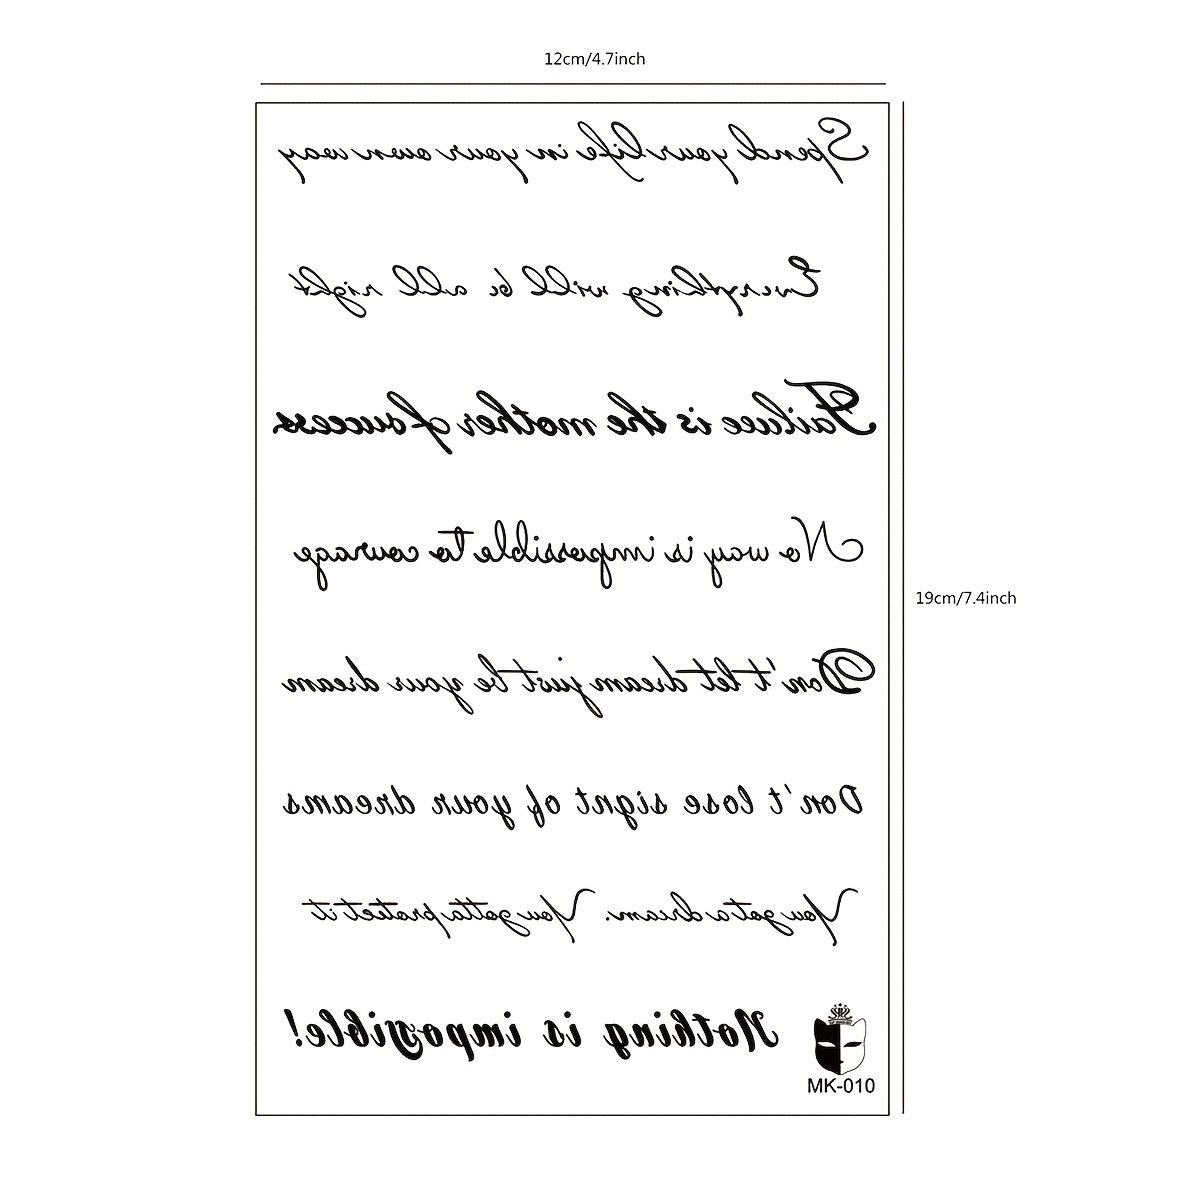 12cm/4.7inch
Spend your life in your own way
Everything will be all right
Failuce is the mother of success
No way is impossible to courage
19cm/7.4inch
Don't let dream just be your dream
Don't lose signt of your dreams
You got a dream. You gotta protect it
Nothing is impossible!
MK-010